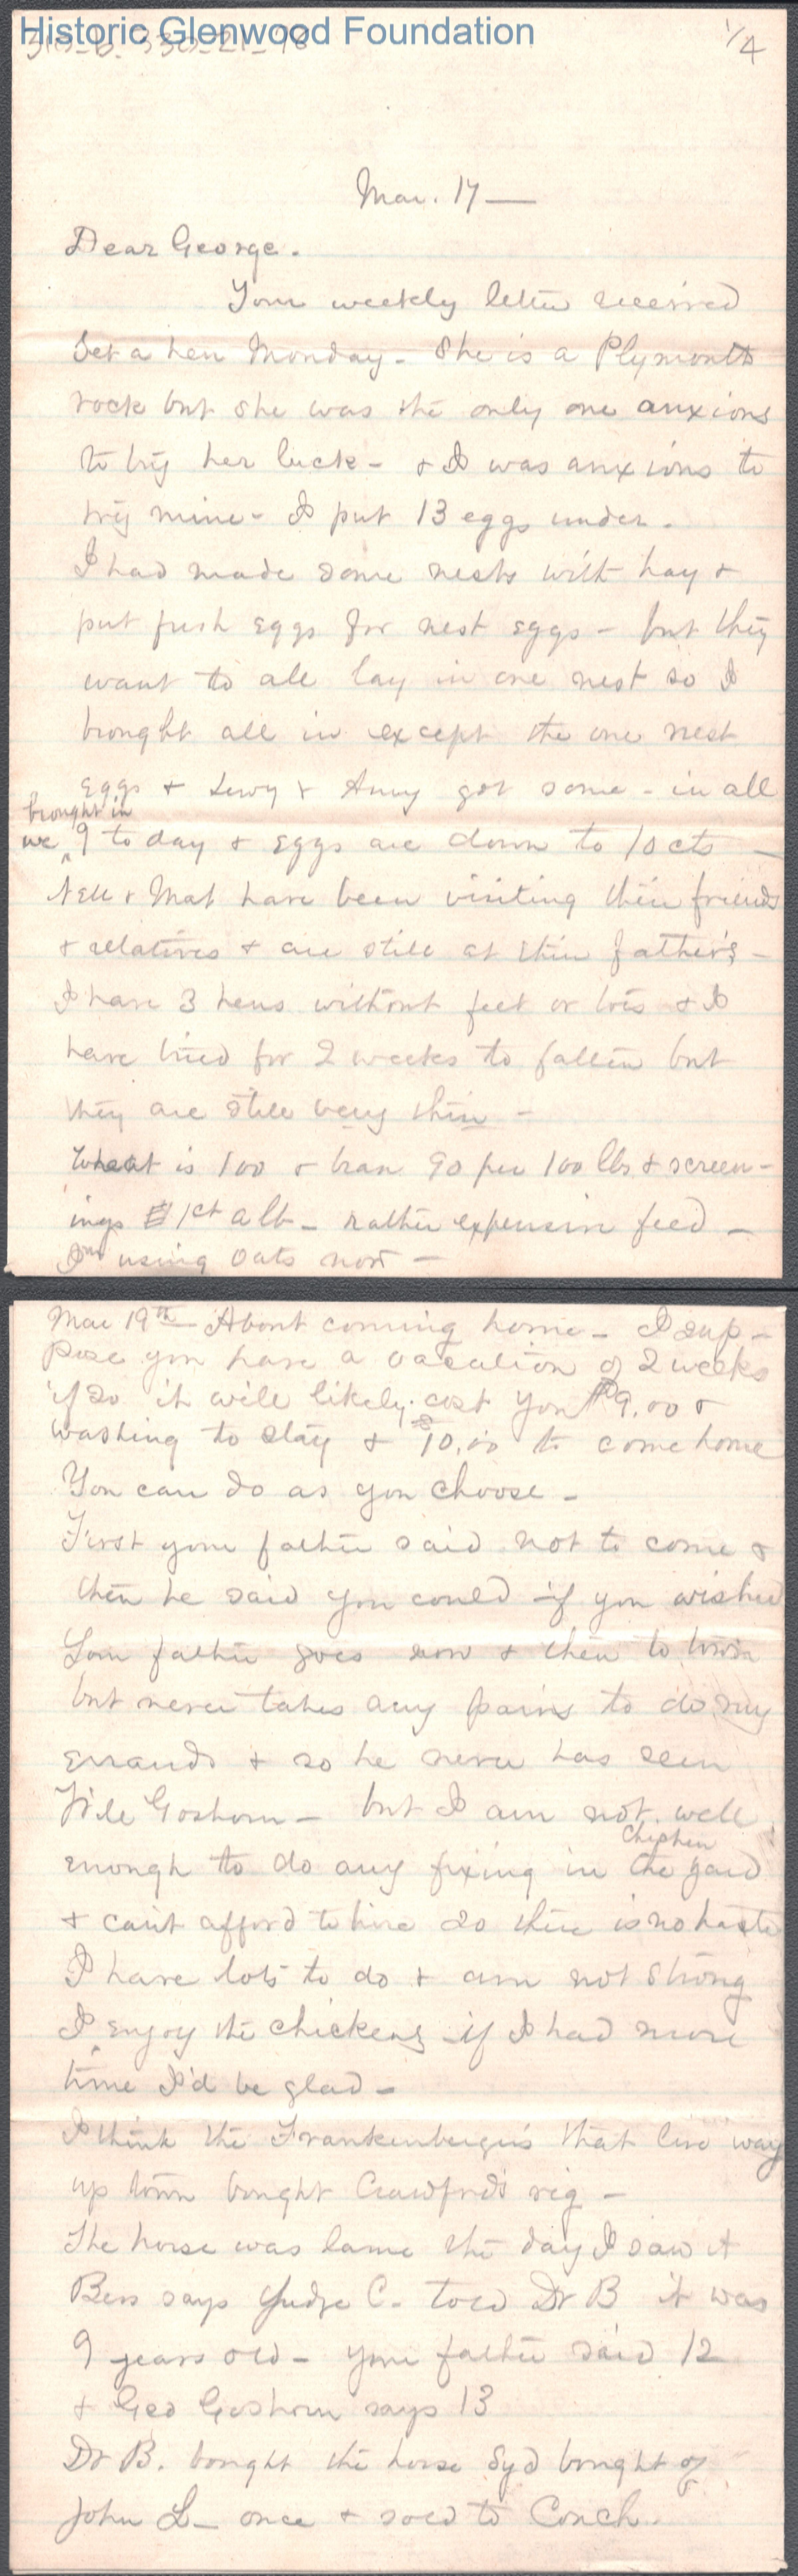 Historic Glenwood Foundation
1/4
Mar. 17—
Dear George.
Your weekly letter received
Set a hen Monday - She is a Plymouth
rock but she was the only one anxious
to try her luck - & I was anxious to
try mine - I put 13 eggs under.
I had made some nests with hay &
put fresh eggs for nest eggs - but they
want to all lay in one nest so I
brought all in except the one nest
eggs & Lewy & Amy got some - in all
brought in
we 9 to day & eggs are down to 10 cts —
Nell & Mat have been visiting their friends
& relatives & are still at their father's -
I have 3 hens without feet or toes & I
have tried for 2 weeks to fatten but
they are still very thin -
Wheat is 100 & bran 90 per 100 lbs & screen-
ings 1ct a lb - rather expensive feed -
I'm using oats now -
Mar 19th - About coming home - I sup-
pose you have a vacation of 2 weeks
if so it will likely cost you $9.00 &
washing to stay & $10.00 to come home
You can do as you choose -
First your father said not to come &
then he said you could if you wished
Your father goes now & then to town
but never takes any pains to do my
errands & so he never has seen
Goshorn - but I am not well
chicken
enough to do any fixing in the yard
& can't afford to hire so there is no haste
I have lots to do & am not strong
I enjoy the chickens if I had more
time I'd be glad -
I think the Frankenberger's that live way
up town bought Crawford's rig -
The horse was lame the day I saw it
Bess says Judge C. told Dr B it was
9 years old - your father said 12
& Geo Goshorn says 13
Dr B. bought the horse Syd bought of
John L - once & sold to Couch.